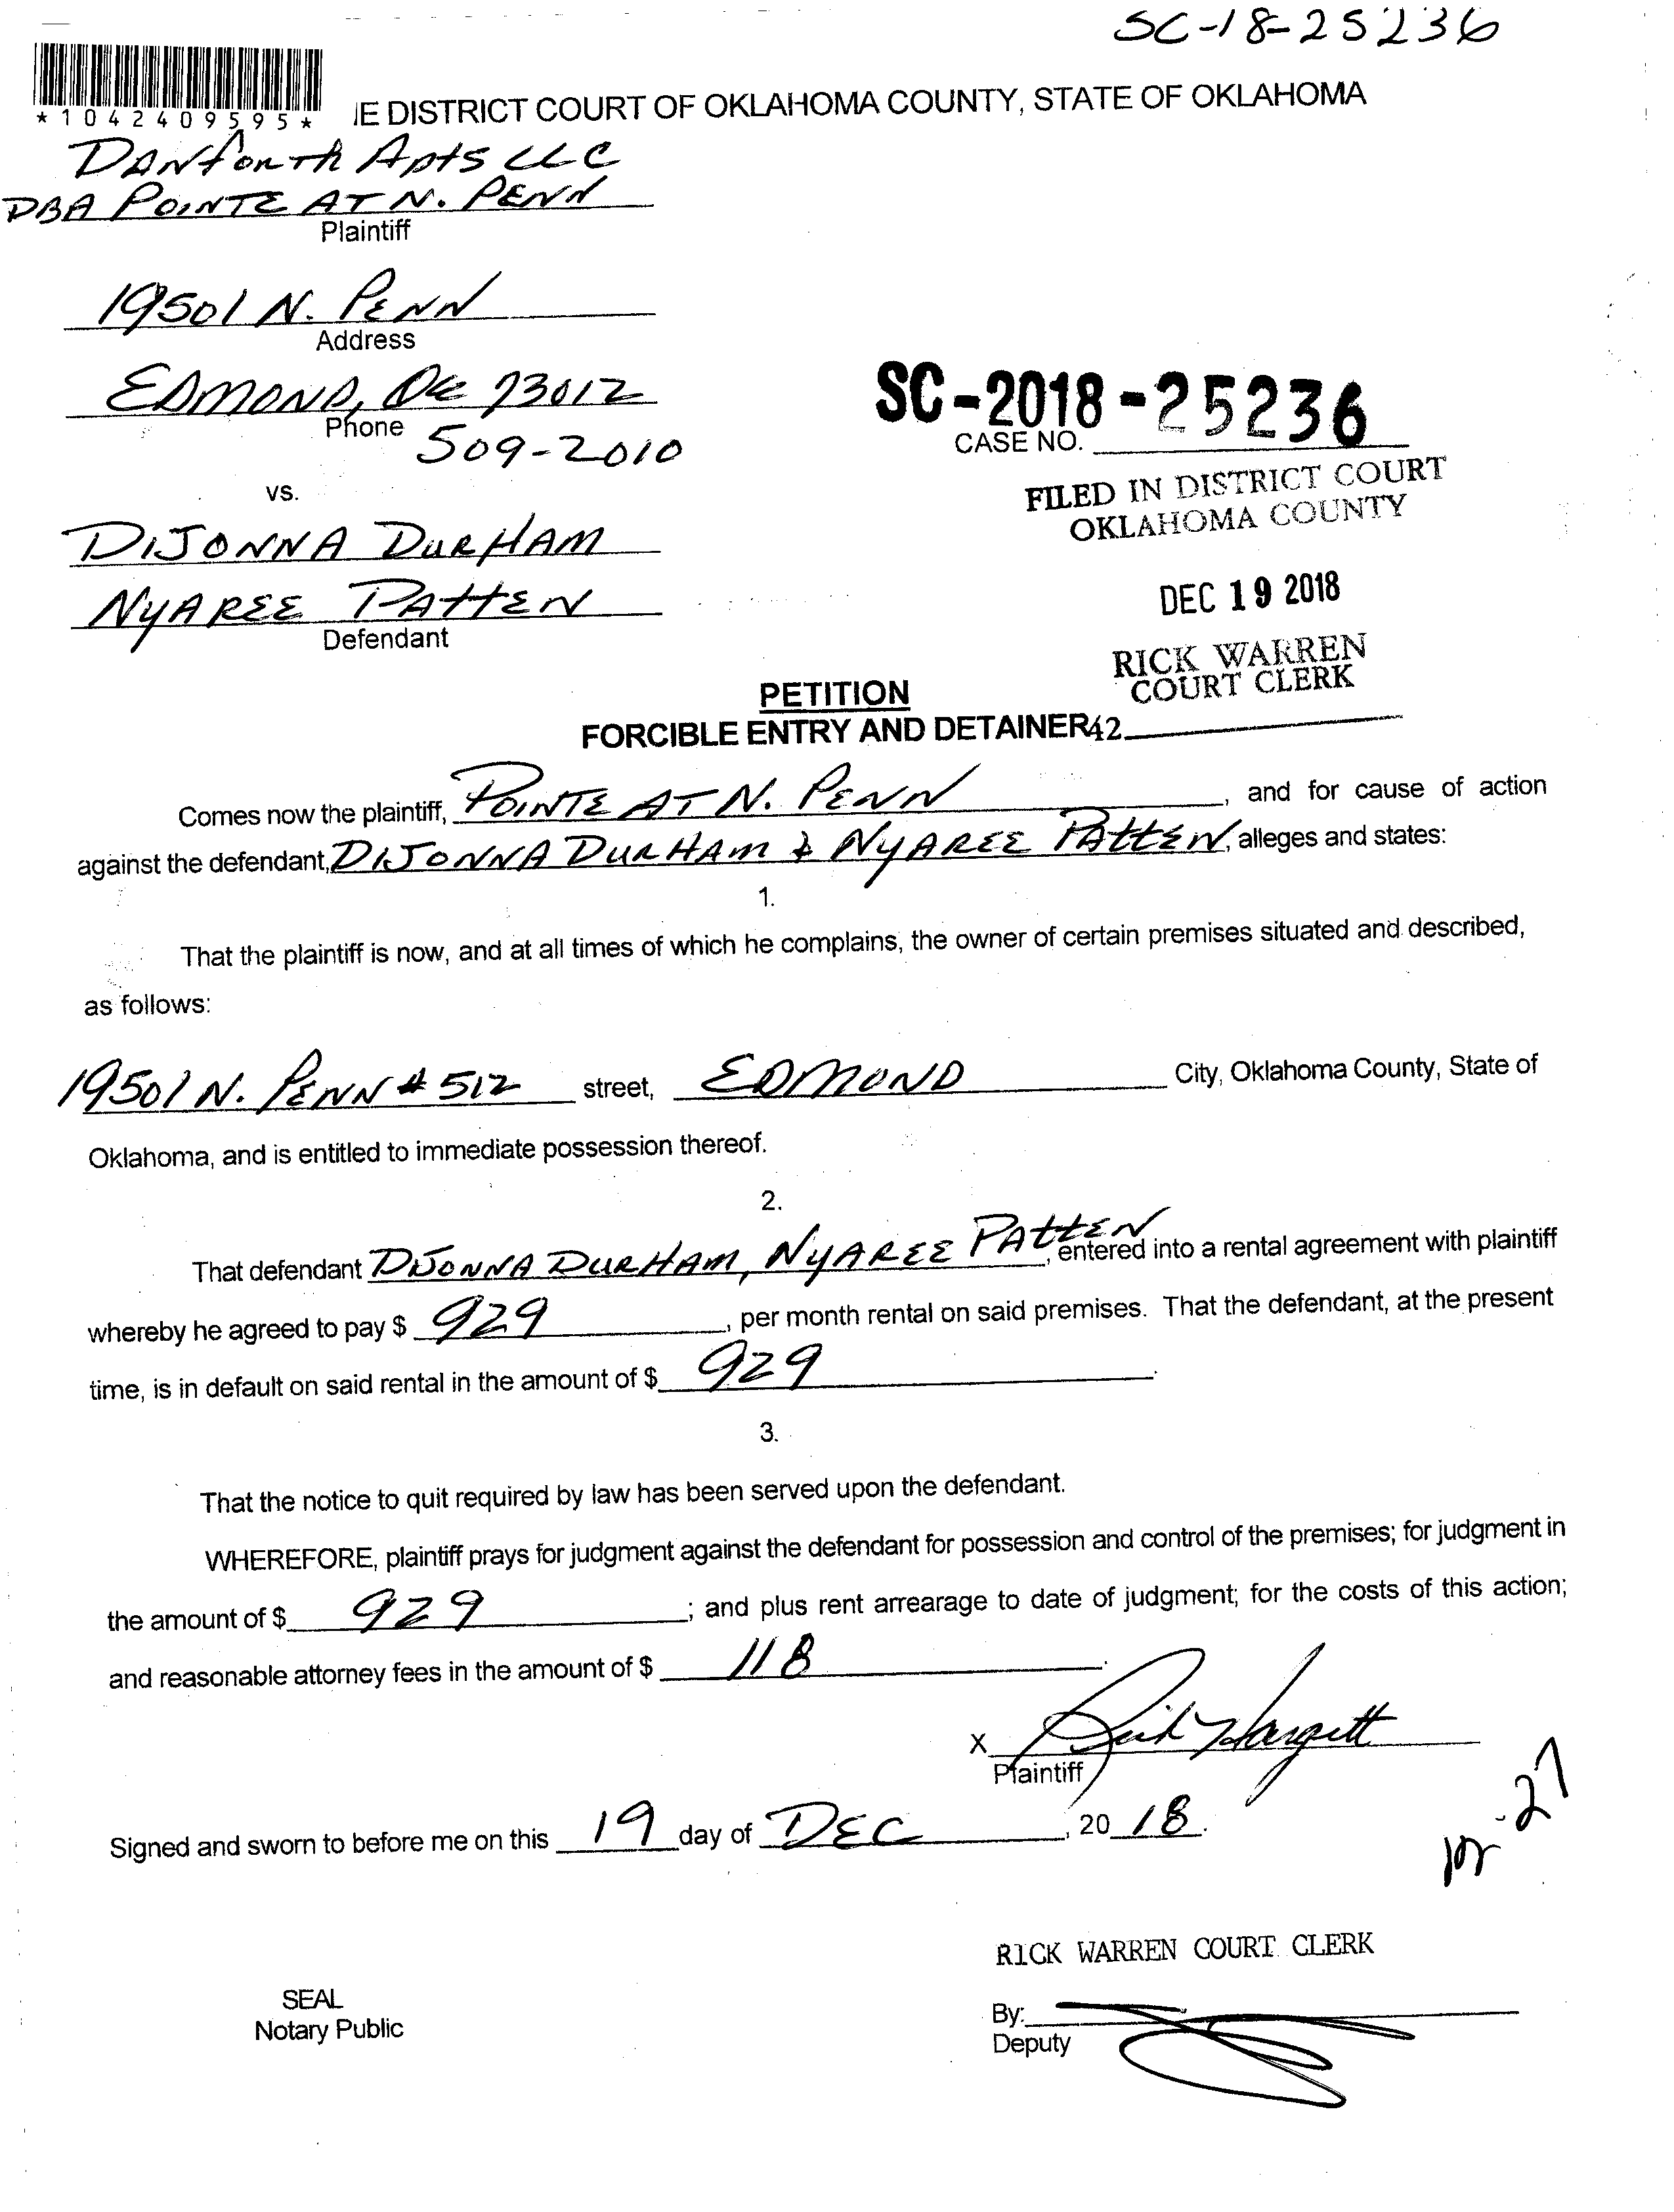 SC-18-25236
*1042409595*
IE DISTRICT COURT OF OKLAHOMA COUNTY, STATE OF OKLAHOMA
DANforth Apts LLC
DBA POINTE AT N. PENN
Plaintiff
19501 N. PENN
Address
EDMOND, OK 73012
Phone 509-2010
vs.
DIJONNA DURHAM
NYAREE PATTEN
Defendant
SC-2018-25236
CASE NO.
FILED IN DISTRICT COURT
OKLAHOMA COUNTY
DEC 19 2018
RICK WARREN
COURT CLERK
PETITION
FORCIBLE ENTRY AND DETAINER 42
Comes now the plaintiff, POINTE AT N. PENN, and for cause of action
against the defendant, DIJONNA DURHAM & NYAREE PATTEN, alleges and states:
1.
That the plaintiff is now, and at all times of which he complains, the owner of certain premises situated and described,
as follows:
19501 N. PENN # 512 street, EDMOND City, Oklahoma County, State of
Oklahoma, and is entitled to immediate possession thereof.
2.
That defendant DIJONNA DURHAM, NYAREE PATTEN, entered into a rental agreement with plaintiff
whereby he agreed to pay $ 929, per month rental on said premises. That the defendant, at the present
time, is in default on said rental in the amount of $ 929.
3.
That the notice to quit required by law has been served upon the defendant.
WHEREFORE, plaintiff prays for judgment against the defendant for possession and control of the premises; for judgment in
the amount of $ 929; and plus rent arrearage to date of judgment; for the costs of this action;
and reasonable attorney fees in the amount of $ 118.
X
Plaintiff
Signed and sworn to before me on this 19 day of DEC, 2018.
RICK WARREN COURT CLERK
SEAL
Notary Public
By:
Deputy